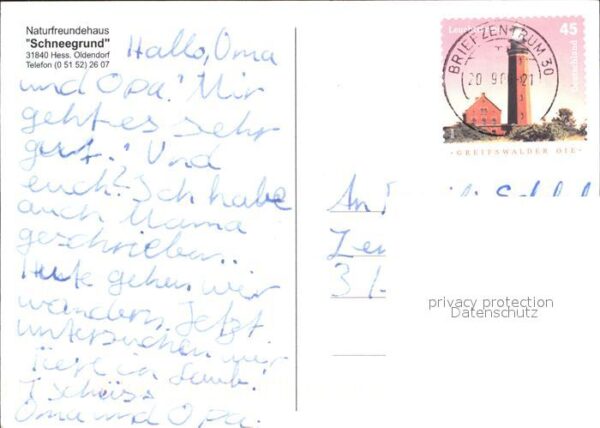 Naturfreundehaus
"Schneegrund"
31840 Hess. Oldendorf
Telefon (0 51 52) 26 07
Hallo, Oma
und Opa! Mir
geht es sehr
gut! Und
euch? Ich habe
auch Mama
geschrieben..
Heute gehen wir
wandern. Jetzt
untersuchen wir
Tiere im Laub!
Tschüss
Oma und Opa.
45
Deutschland
BRIEFZENTRUM 30
-21
GREIFSWALDER OIE
An
privacy protection
Datenschutz